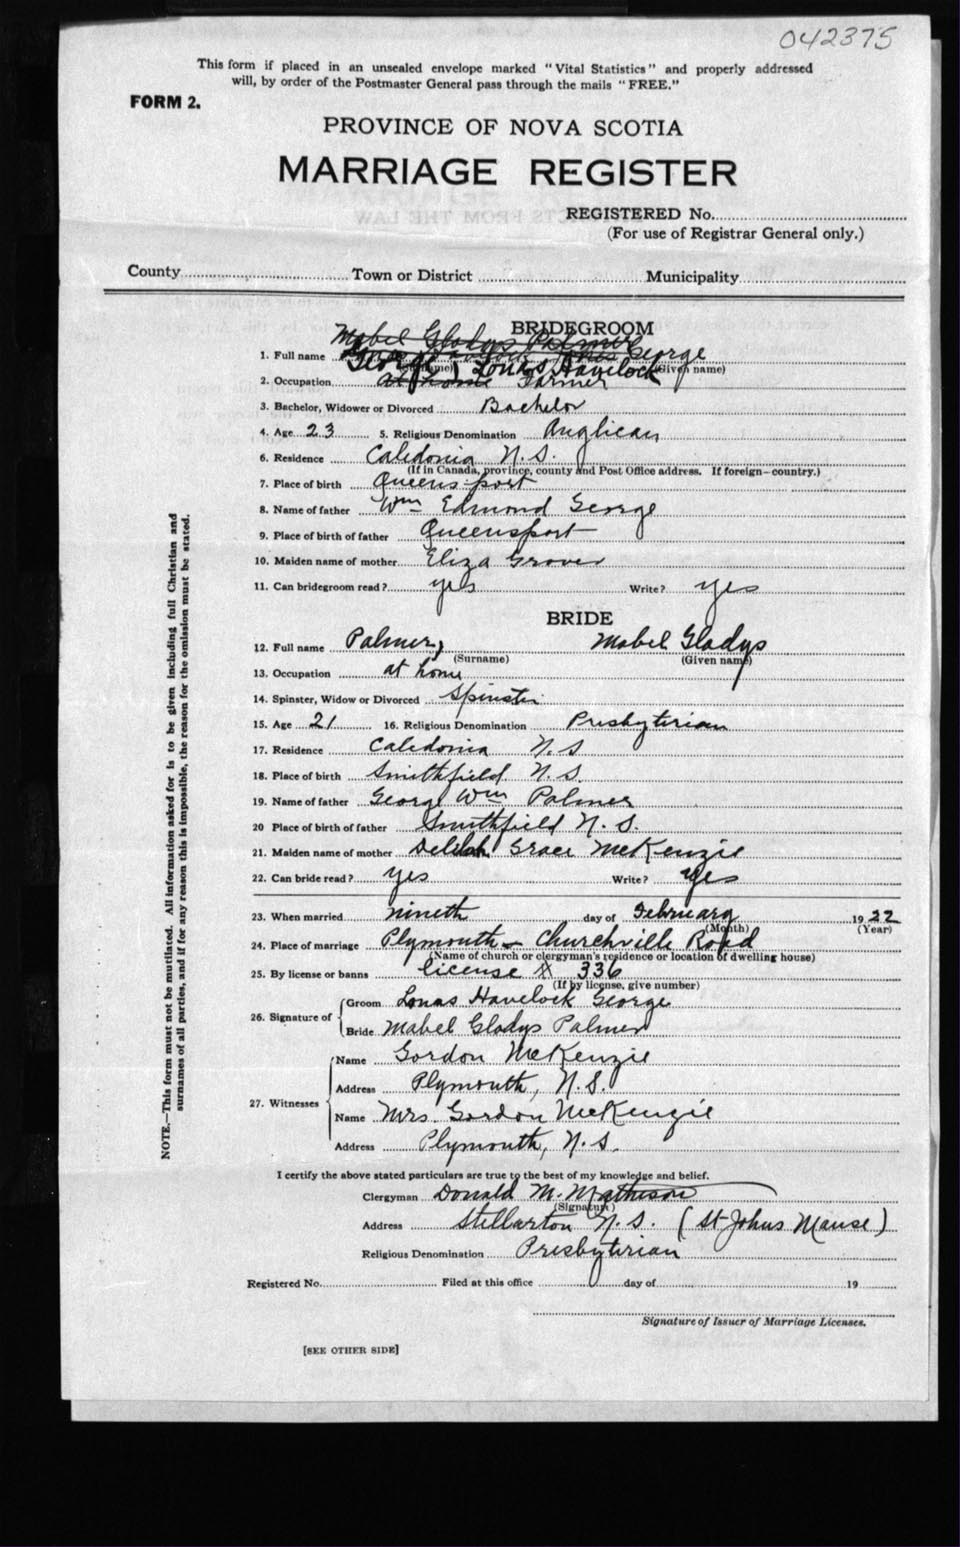 042375
This form if placed in an unsealed envelope marked "Vital Statistics" and properly addressed
will, by order of the Postmaster General pass through the mails "FREE."
FORM 2.
PROVINCE OF NOVA SCOTIA
MARRIAGE REGISTER
REGISTERED No.
(For use of Registrar General only.)
County Town or District Municipality
BRIDEGROOM
Mabel Gladys Palmer
1. Full name George
George, Lonas Havelock (Given name)
2. Occupation at home Farmer
3. Bachelor, Widower or Divorced Bachelor
4. Age 23 5. Religious Denomination Anglican
6. Residence Caledonia N.S.
(If in Canada, province, county and Post Office address. If foreign—country.)
7. Place of birth Queensport
8. Name of father Wm Edmond George
9. Place of birth of father Queensport
10. Maiden name of mother Eliza Grover
11. Can bridegroom read? yes Write? yes
BRIDE
12. Full name Palmer, Mabel Gladys
(Surname) (Given name)
13. Occupation at home
14. Spinster, Widow or Divorced Spinster
15. Age 21 16. Religious Denomination Presbyterian
17. Residence Caledonia N.S
18. Place of birth Smithfield N.S.
19. Name of father George Wm Palmer
20 Place of birth of father Smithfield N.S.
21. Maiden name of mother Delilah Grace McKenzie
22. Can bride read? yes Write? yes
23. When married nineth day of February 1922
(Month) (Year)
24. Place of marriage Plymouth - Churchville Road
(Name of church or clergyman's residence or location of dwelling house)
25. By license or banns license 336
(If by license, give number)
26. Signature of Groom Lonas Havelock George
Bride Mabel Gladys Palmer
27. Witnesses Name Gordon McKenzie
Address Plymouth, N.S.
Name Mrs. Gordon McKenzie
Address Plymouth, N.S.
I certify the above stated particulars are true to the best of my knowledge and belief.
Clergyman Donald M. Matheson
(Signature)
Address Stellarton N.S. (St Johns Manse)
Religious Denomination Presbyterian
Registered No. Filed at this office day of 19
Signature of Issuer of Marriage Licenses.
[SEE OTHER SIDE]
NOTE.—This form must not be mutilated. All information asked for is to be given including full Christian and
surnames of all parties, and if for any reason this is impossible, the reason for the omission must be stated.